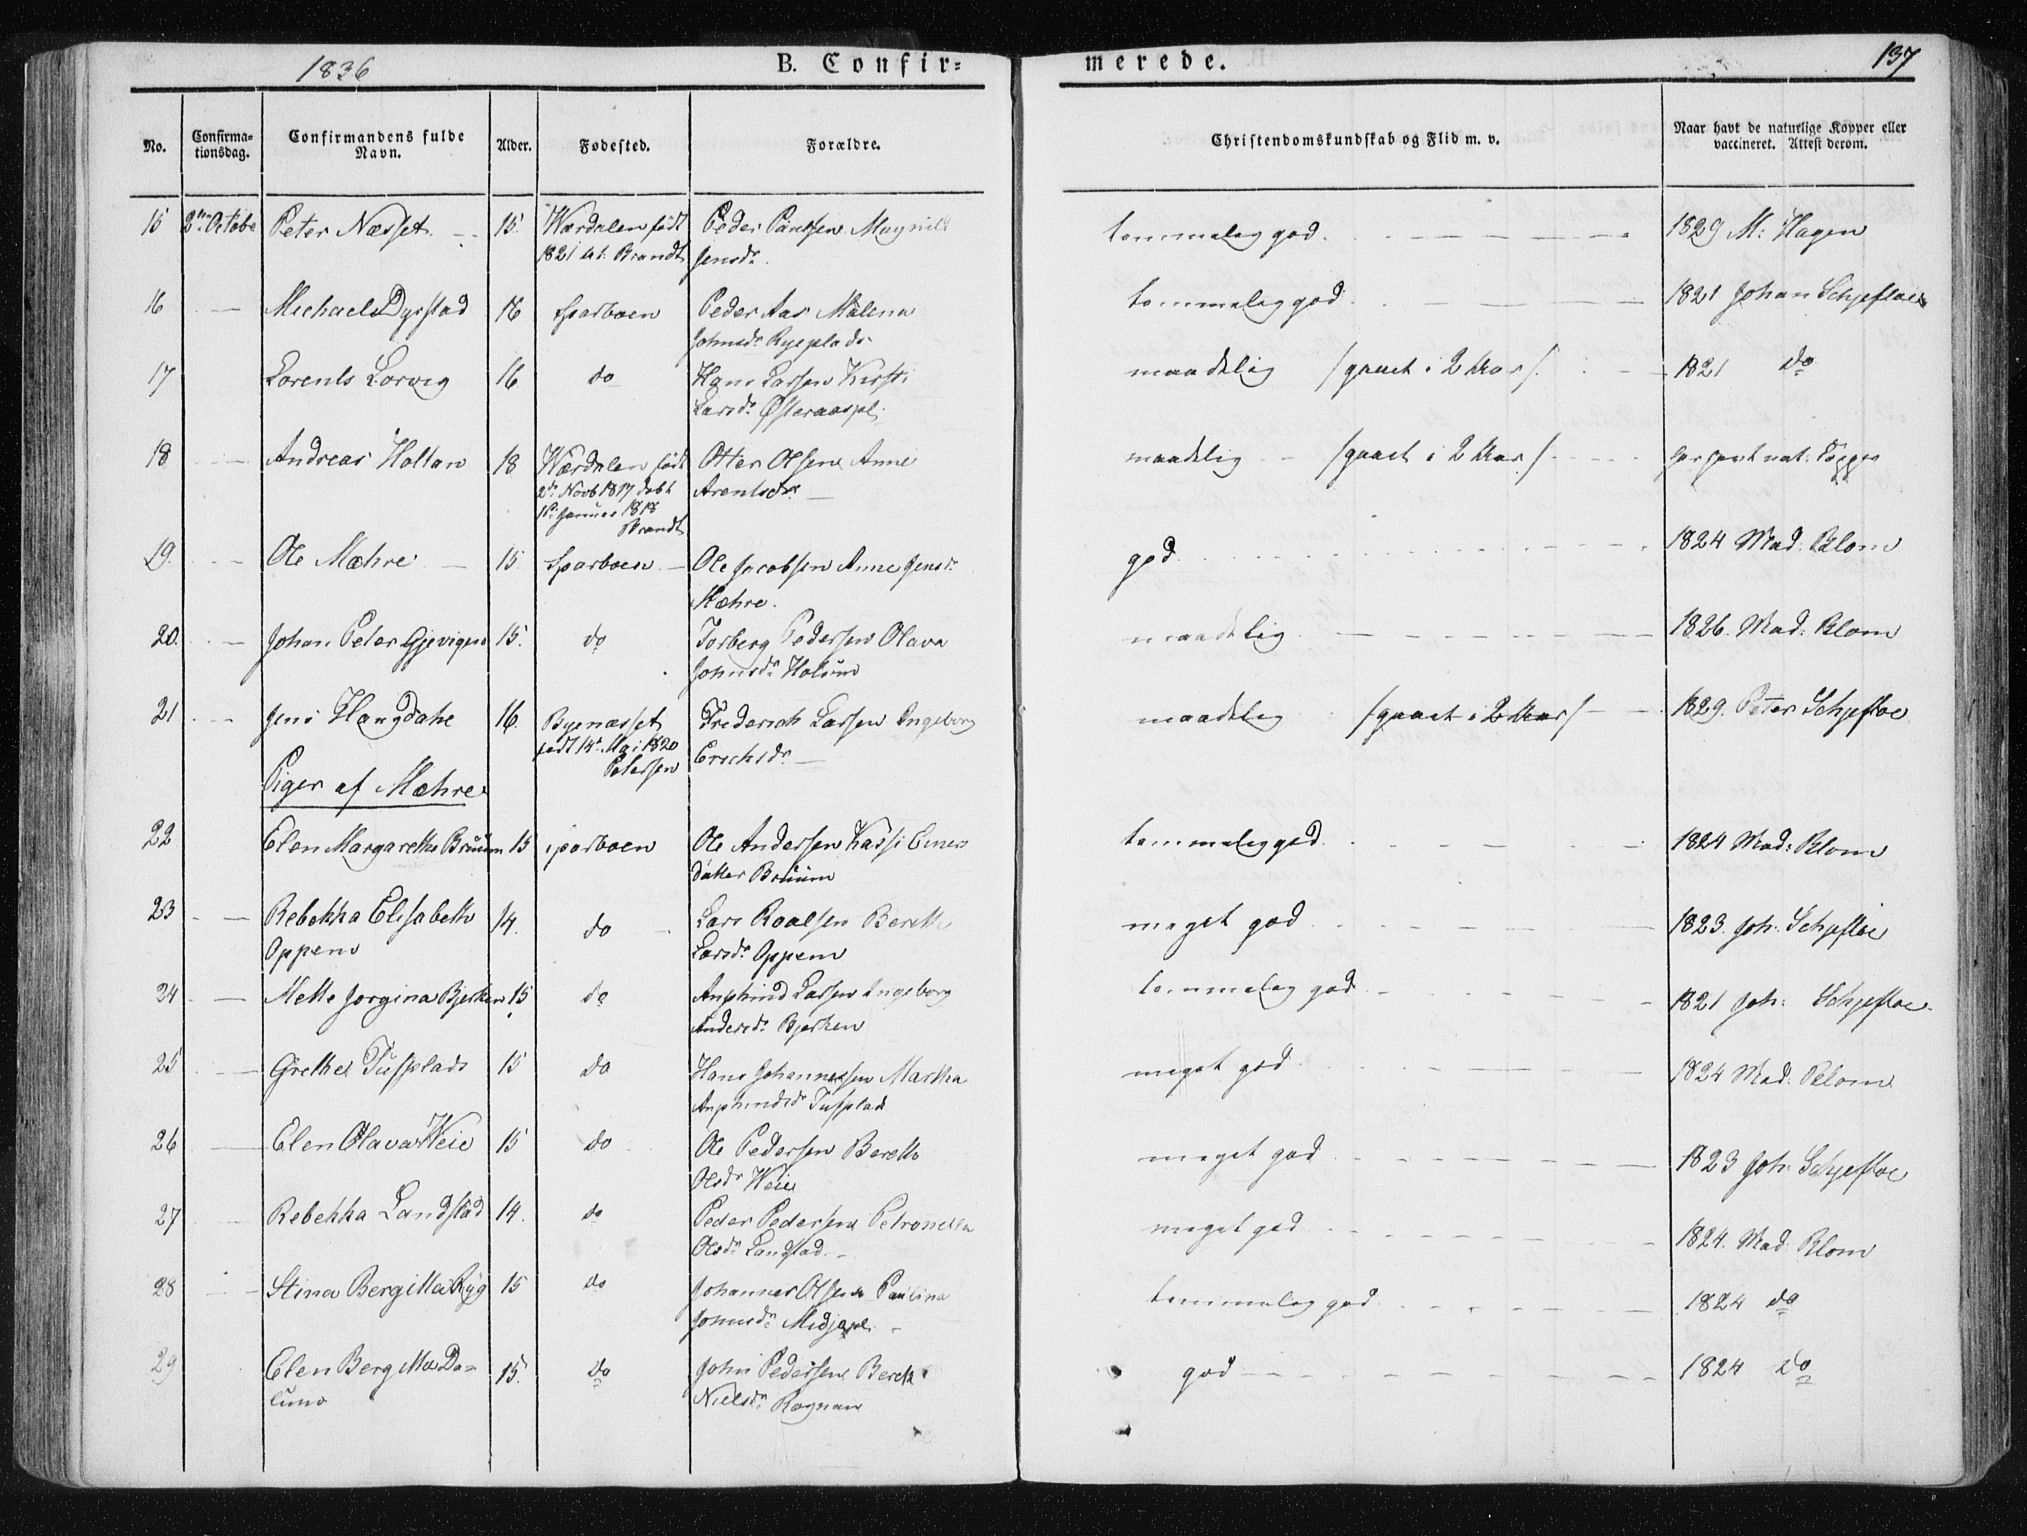 1836 B. Confir= merede. 137
No. Confirma-tionsdag. Confirmandens fulde Navn. Alder. Fødested. Forældre. Christendomskundskab og Flid m. v. Naar havt de naturlige Kopper eller vaccineret. Attest derom.
15 2den Octobe Peter Næsset 15. Wærdalen født Peder Paulsen Magnild temmelig god. 1829 M: Hagen
1821 at: Brandt Jensdr.
16 Michael Dyrstad 16 Sparboen Peder Aas Malena temmelig god. 1821 Johan Schjefloe
Johnsdr Ryeplads
17 Lorents Lorvig 16 do Hans Larsen Kirsti maadelig /gaaet i 2 Aar/. 1821 do
Larsdr Østeraaspl.
18 Andreas Holtan 18 Wærdalen født Otter Olsen Anne maadelig /gaaet i 2 Aar/ har havt nat: Kopper
2de Novb 1817 døbt Arentsdr.
1ste Januar 1818
Brandt
19. Ole Mæhre 15 Sparboen Ole Jacobsen Anne Jensdr. god. 1824 Mad: Blom
Mæhre.
20. Johan Peter Gjevigen 15. do Torberg Pedersen Olava maadelig 1826. Mad: Blom
Johnsdr Holum
21 Jens Haugdahl 16. Byenæsset Frederich Larsen Ingeborg maadelig /gaaet i 2 Aar/ 1829. Peter Schjefloe
født 14de Mai 1820 Erichsdr.
Petersen
Piger af Mæhre
22 Elen Margarethe Bruum 15 sparboen Ole Andersen Kassi Einers temmelig god. 1824 Mad: Blom
datter Bruum
23 Rebekka Elisabeth 14. do Lars Roalsen Bereth meget god 1823. Joh: Schjefloe
Oppem Larsdr Oppem
24 Mette Jorgina Bjerken 15 do Anphind Larsen Ingeborg temmelig god 1821 Joh: Schjefloe.
Andersdr. Bjerken
25 Grethe Tufplads 15 do Hans Johannesen Martha meget god. 1824 Mad: Blom
Anphindsdr Tufplads
26 Elen Olava Weie 15 do Ole Pedersen Bereth meget god 1823 Joh: Schjefloe
Olsdr Weie
27 Rebekka Landstad 14. do Peder Pedersen Petronella meget god 1824. Mad: Blom
Olsdr Landstad.
28 Stina Bergitha Ryg 15 do Johannes Olsen Paulina temmelig god. 1824 do
Johnsdr. Midjapl.
29 Elen Bergitha Da- 15. do John Pedersen Bereth god 1824 do
luno Nielsdr. Rognan